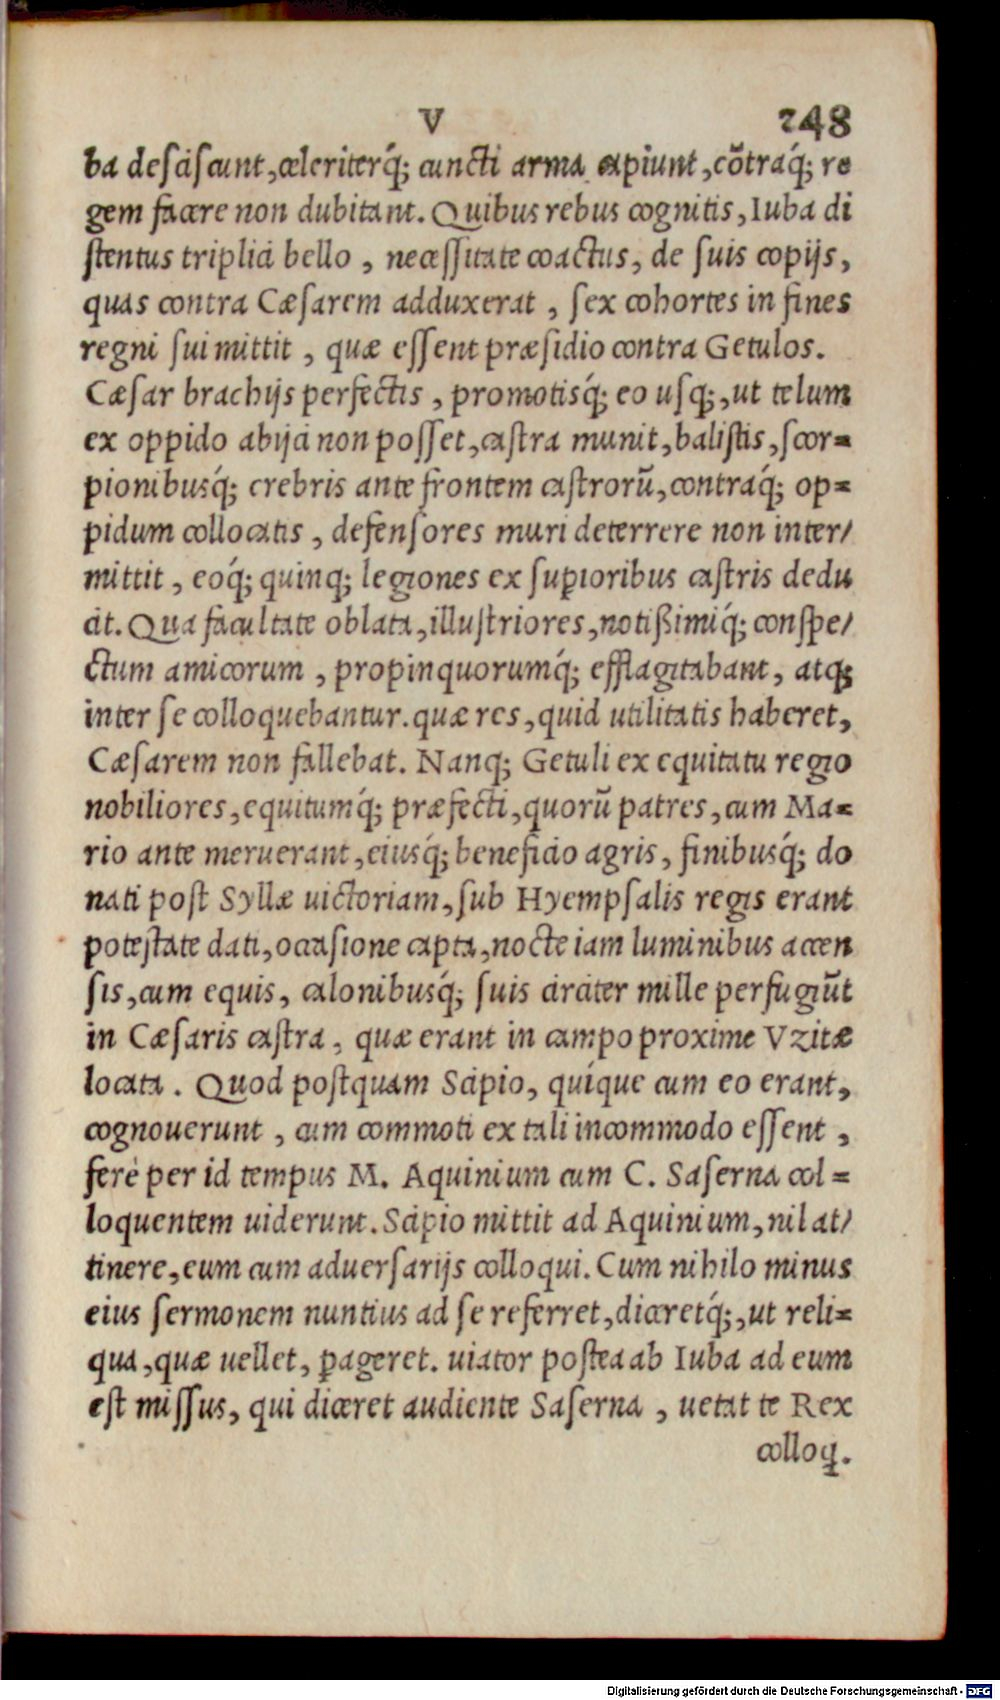 V 248
ba desciscunt, celeriterq́; cuncti arma capiunt, cõtraq́; re
gem facere non dubitant. Quibus rebus cognitis, Iuba di
stentus triplici bello, necessitate coactus, de suis copijs,
quas contra Cæsarem adduxerat, sex cohortes in fines
regni sui mittit, quæ essent præsidio contra Getulos.
Cæsar brachijs perfectis, promotisq́; eo usq;, ut telum
ex oppido abijci non posset, castra munit, balistis, scor=
pionibusq́; crebris ante frontem castrorũ, contraq́; op=
pidum collocatis, defensores muri deterrere non inter/
mittit, eoq́; quinq; legiones ex sup̱ioribus castris dedu
cit. Qua facultate oblata, illustriores, notißimiq́; conspe/
ctum amicorum, propinquorumq́; efflagitabant, atq;
inter se colloquebantur. quæ res, quid utilitatis haberet,
Cæsarem non fallebat. Nanq; Getuli ex equitatu regio
nobiliores, equitumq́; præfecti, quorũ patres, cum Ma=
rio ante meruerant, eiusq́; beneficio agris, finibusq́; do
nati post Syllæ uictoriam, sub Hyempsalis regis erant
potestate dati, occasione capta, nocte iam luminibus accen
sis, cum equis, calonibusq́; suis circiter mille perfugiũt
in Cæsaris castra, quæ erant in campo proxime Vzitæ
locata. Quod postquam Scipio, quique cum eo erant,
cognouerunt, cum commoti ex tali incommodo essent,
ferè per id tempus M. Aquinium cum C. Saserna col=
loquentem uiderunt. Scipio mittit ad Aquinium, nil at/
tinere, eum cum aduersarijs colloqui. Cum nihilo minus
eius sermonem nuntius ad se referret, diceretq́;, ut reli=
qua, quæ uellet, p̱ageret. uiator postea ab Iuba ad eum
est missus, qui diceret audiente Saserna, uetat te Rex
colloq̱.
Digitalisierung gefördert durch die Deutsche Forschungsgemeinschaft - DFG